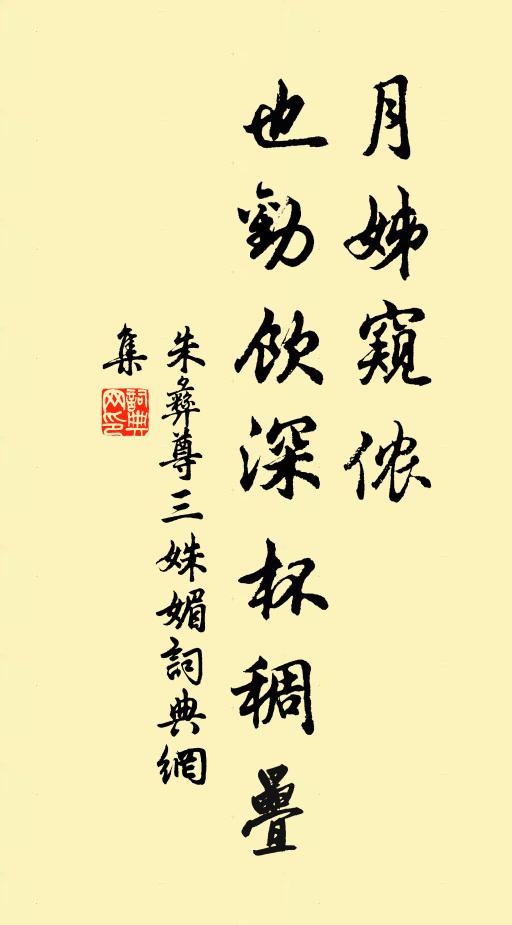 月姊窺侬
也勸飲深杯稠疊
朱彝尊三姝媚詞典網
集
詞典网印